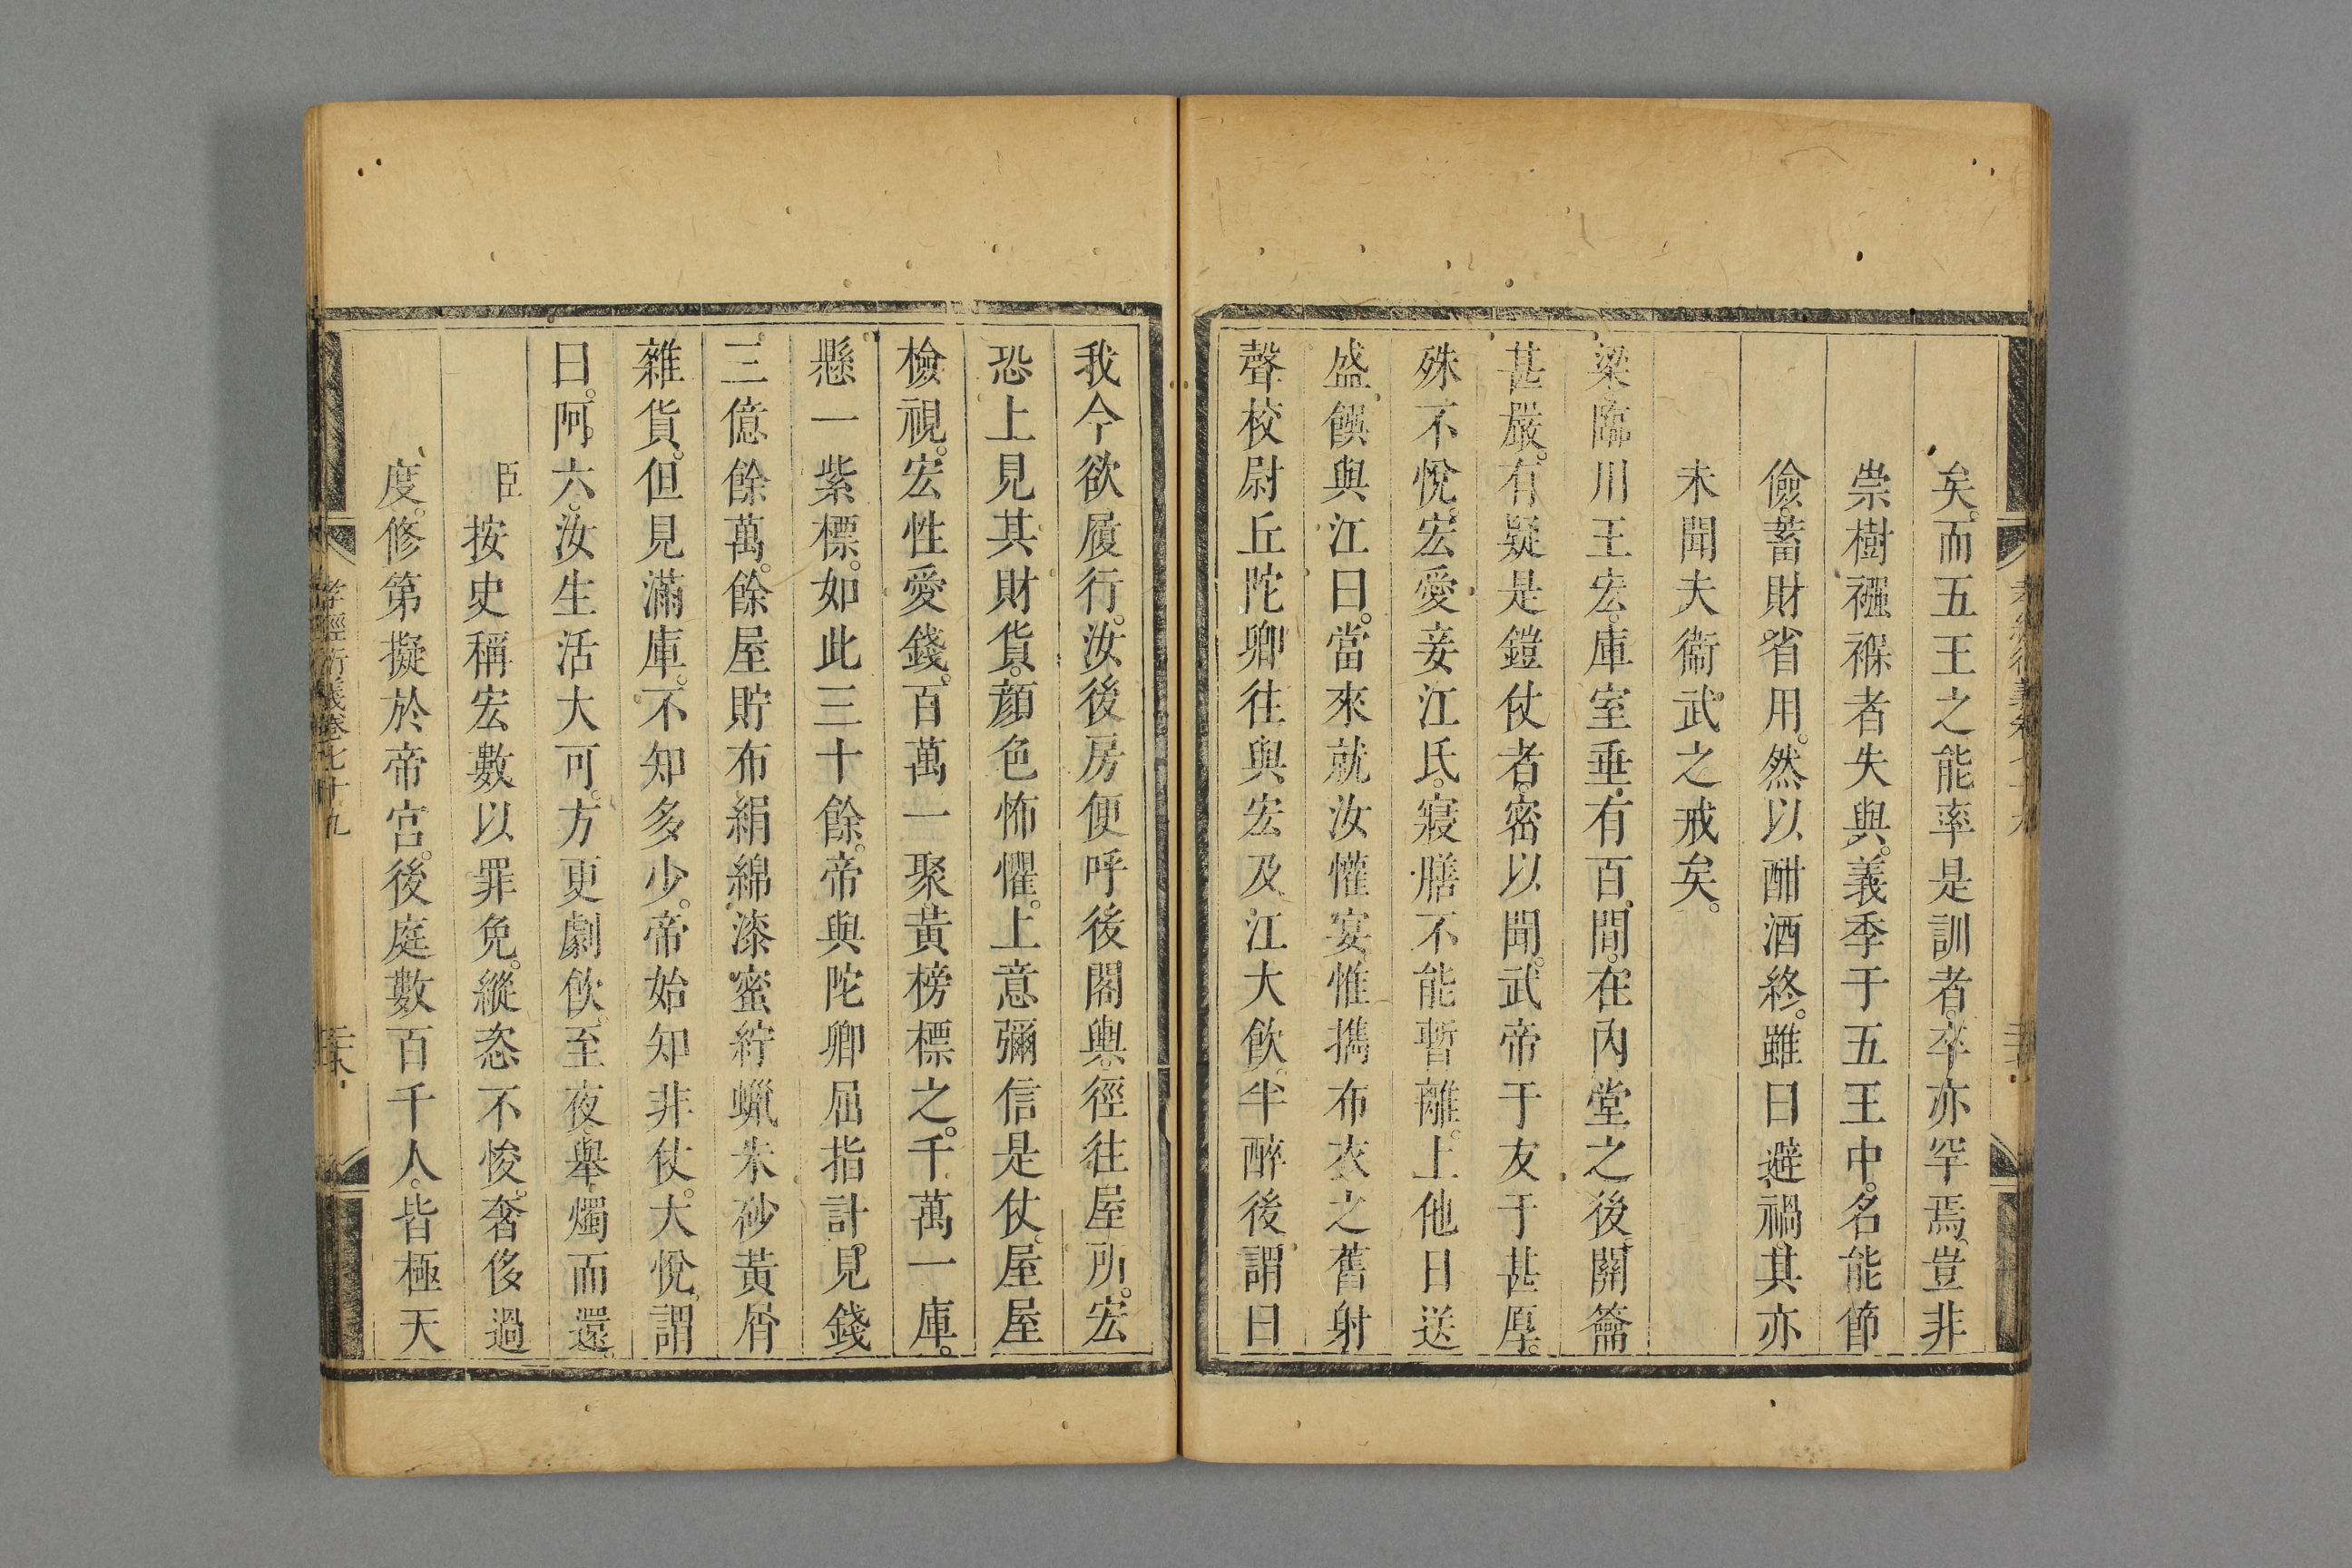 矣。而五王之能率是訓者。卒亦罕焉。豈非
崇樹襁褓者失與。義季于五王中。名能節
儉。蓄財省用。然以酣酒終。雖曰避禍。其亦
未聞夫衞武之戒矣。
梁臨川王宏。庫室垂有百間。在內堂之後。關籥
甚嚴。有疑是鎧仗者。密以聞。武帝于友于甚厚。
殊不悅。宏愛妾江氏。寢膳不能暫離。上他日送
盛饌與江曰。當來就汝懽宴。惟攜布衣之舊射
聲校尉丘陀卿往。與宏及江大飲。半醉後謂曰
我今欲履行。汝後房便呼後閤輿。徑往屋所。宏
恐上見其財貨。顏色怖懼。上意彌信是仗。屋屋
檢視。宏性愛錢。百萬一聚。黃榜標之。千萬一庫。
懸一紫標。如此三十餘。帝與陀卿屈指計。見錢
三億餘萬。餘屋貯布絹綿漆蜜紵蠟朱砂黃屑
雜貨。但見滿庫。不知多少。帝始知非仗。大悅。謂
曰。阿六。汝生活大可。方更劇飲。至夜舉燭而還。
臣按史稱宏數以罪免。縱恣不悛。奢侈過
度。修第擬於帝宮。後庭數百千人。皆極天
孝經衍義卷七十九